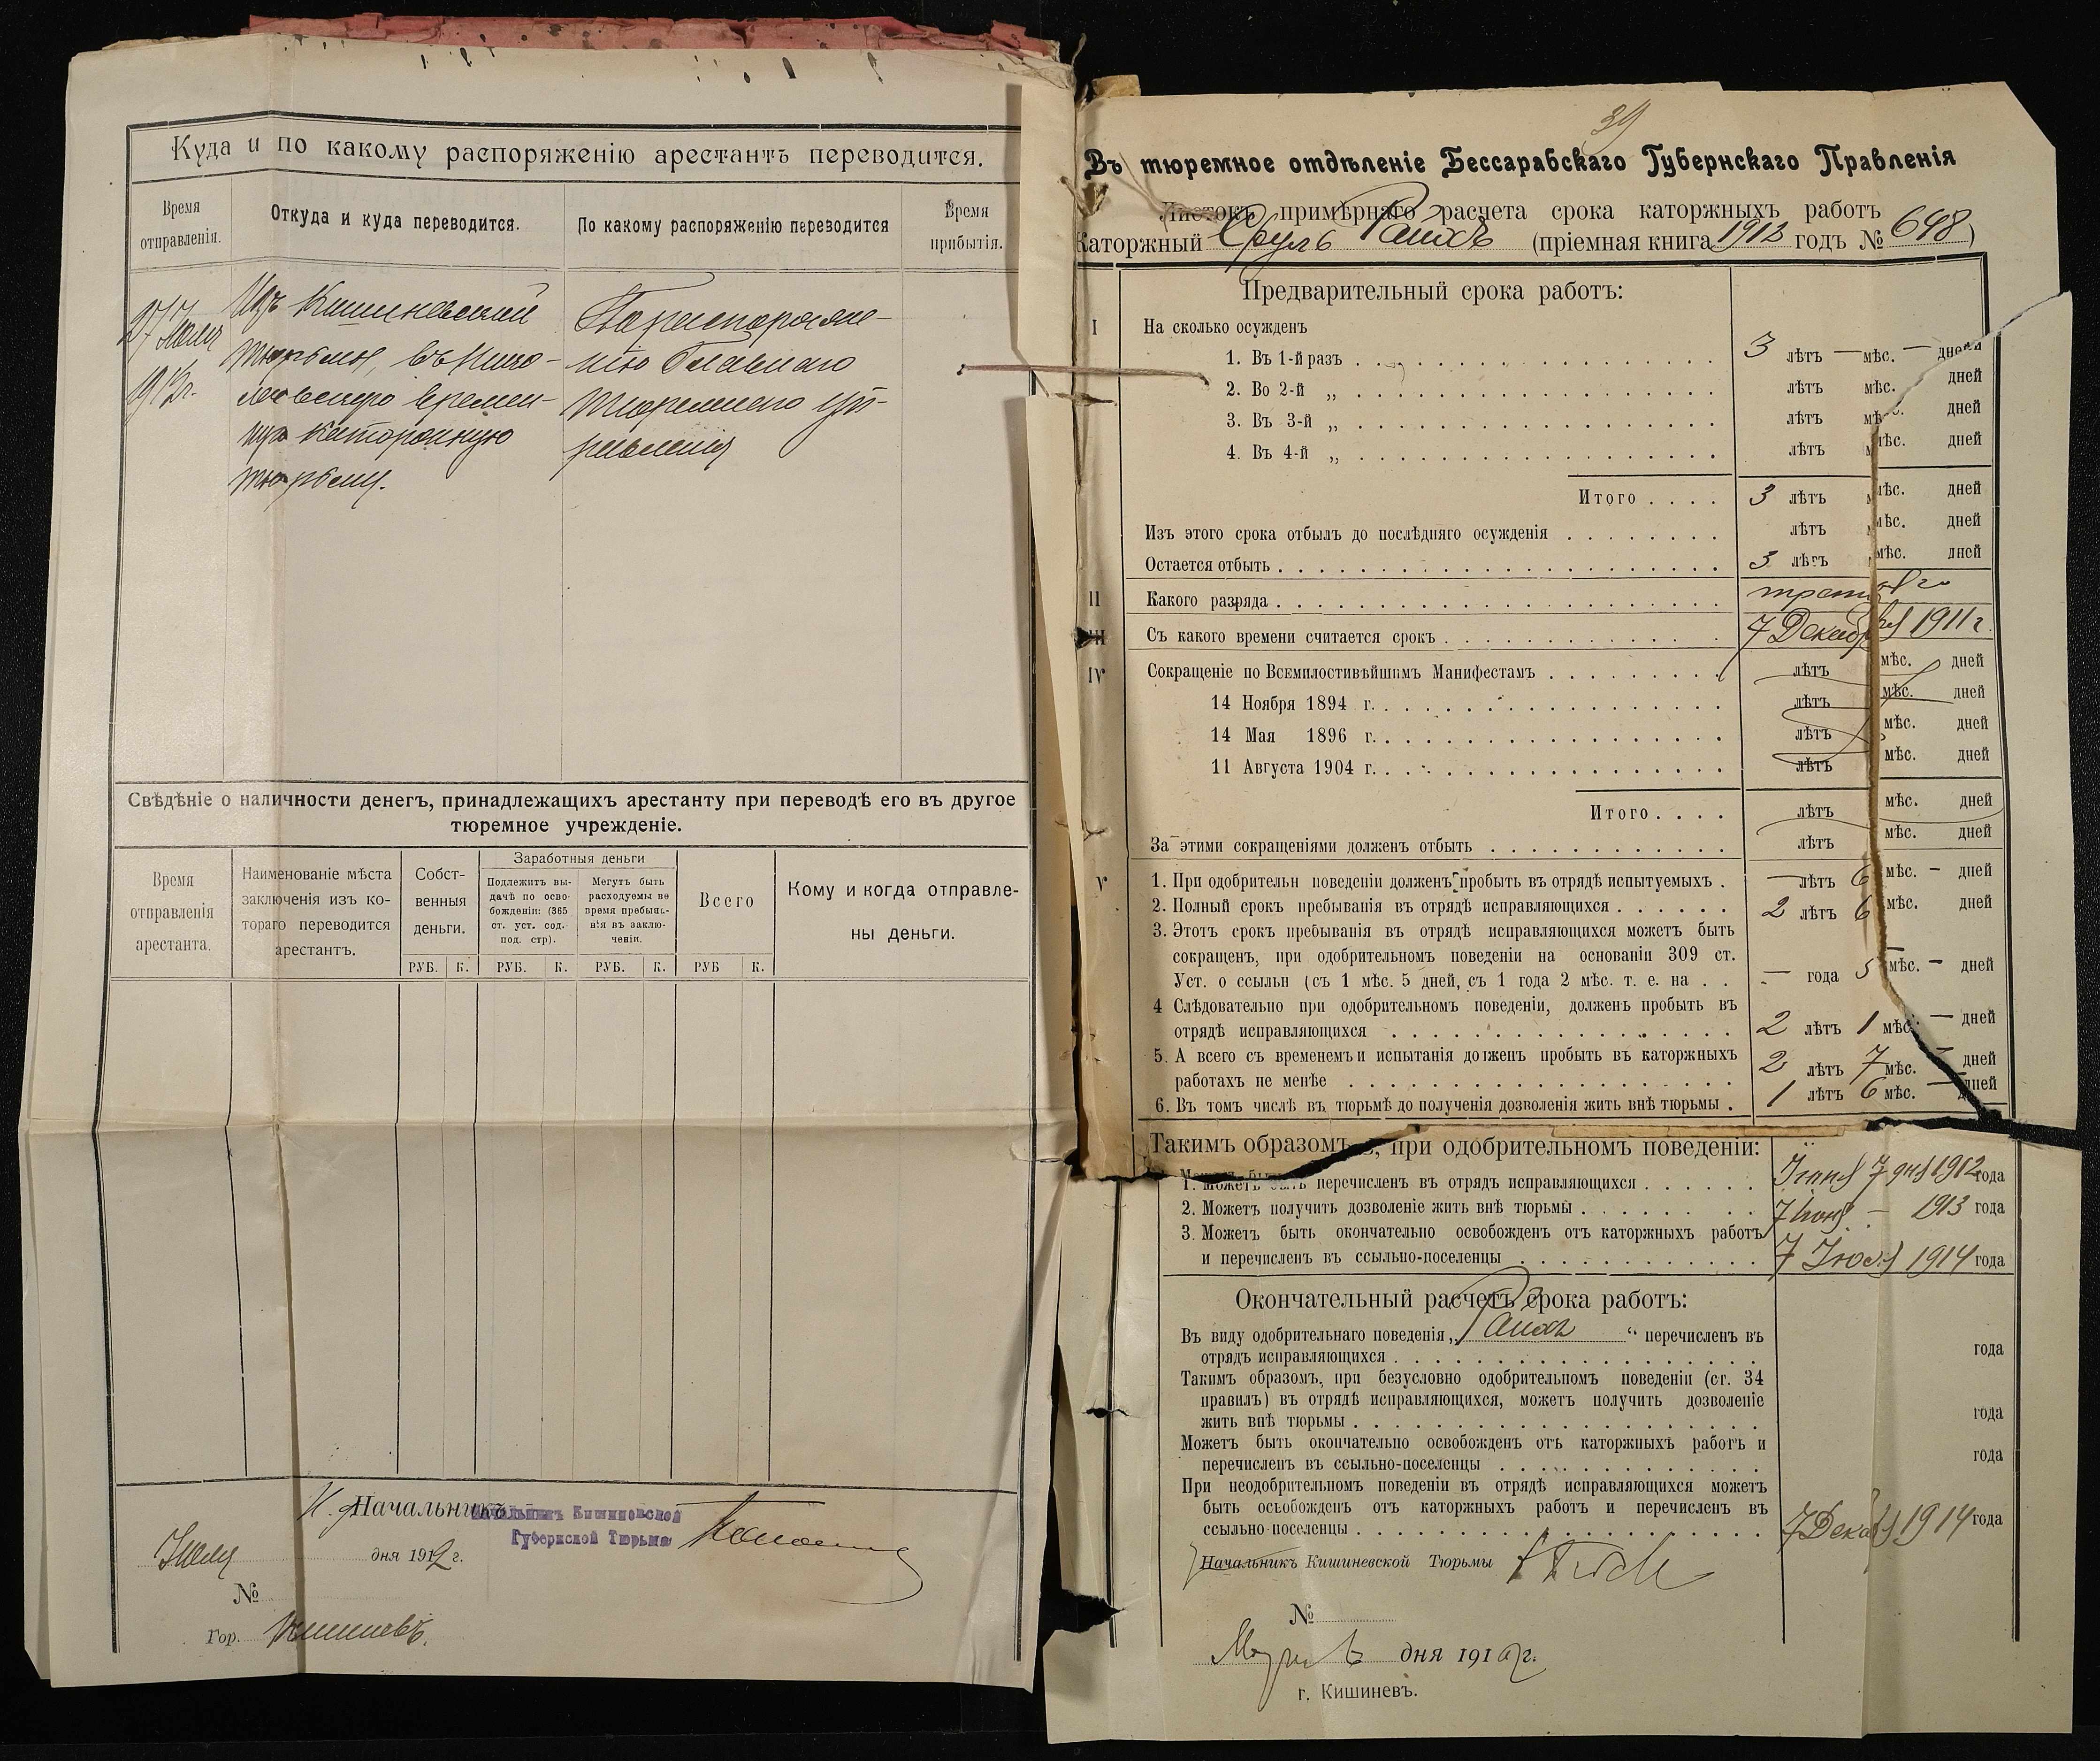 Куда и по какому распоряженію арестантъ переводится.
Время отправленія.
Откуда и куда переводится.
По какому распоряженію переводится
Время прибытія.
27 Іюля
1912г.
Изъ Кишиневской
тюрьмы, въ Нико-
лаевскую времен-
ную каторжную
тюрьму.
По распоряже-
нію Главнаго
Тюремнаго уп-
равленія
Свѣдѣніе о наличности денегъ, принадлежащихъ арестанту при переводѣ его въ другое
тюремное учрежденіе.
Время
отправленія
арестанта.
Наименованіе мѣста
заключенія изъ ко-
тораго переводится
арестантъ.
Собст-
венныя
деньги.
Заработныя деньги
Подлежитъ вы-
дачѣ по осво-
божденіи: (365
ст. уст. сод.
под. стр).
Могутъ быть
расходуемы во
время пребыва-
нія въ заклю-
ченіи.
Всего
Кому и когда отправле-
ны деньги.
РУБ. К. РУБ. К. РУБ. К. РУБ К.
И. д. Начальникъ
Начальникъ Кишиневской
Губернской Тюрьмы
Іюля дня 1912 г.
№
Гор. Кишиневъ.
39
Въ тюремное отдѣленіе Бессарабскаго Губернскаго Правленія
Листокъ примѣрнаго расчета срока каторжныхъ работъ
Каторжный Сруль Райхъ (пріемная книга 1912 годъ № 648)
Предварительный срока работъ:
I На сколько осужденъ
1. Въ 1-й разъ 3 лѣтъ — мѣс. — дней
2. Во 2-й „ лѣтъ мѣс. дней
3. Въ 3-й „ лѣтъ мѣс. дней
4. Въ 4-й „ лѣтъ мѣс. дней
Итого 3 лѣтъ мѣс. дней
Изъ этого срока отбылъ до послѣдняго осужденія лѣтъ мѣс. дней
Остается отбыть 3 лѣтъ мѣс. дней
II Какого разряда третьяго
III Съ какого времени считается срокъ 7 Декабря 1911 г.
IV Сокращеніе по Всемилостивѣйшимъ Манифестамъ лѣтъ мѣс. дней
14 Ноября 1894 г. лѣтъ мѣс. дней
14 Мая 1896 г. лѣтъ мѣс. дней
11 Августа 1904 г. лѣтъ мѣс. дней
Итого лѣтъ мѣс. дней
За этими сокращеніями долженъ отбыть лѣтъ мѣс. дней
V 1. При одобрительн поведеніи долженъ пробыть въ отрядѣ испытуемыхъ . — лѣтъ 6 мѣс. — дней
2. Полный срокъ пребыванія въ отрядѣ исправляющихся 2 лѣтъ 6 мѣс. дней
3. Этотъ срокъ пребыванія въ отрядѣ исправляющихся можетъ быть
сокращенъ, при одобрительномъ поведеніи на основаніи 309 ст.
Уст. о ссыльн (съ 1 мѣс. 5 дней, съ 1 года 2 мѣс. т. е. на . . — года 5 мѣс. — дней
4 Слѣдовательно при одобрительномъ поведеніи, долженъ пробыть въ
отрядѣ исправляющихся 2 лѣтъ 1 мѣс. — дней
5. А всего съ временемъ и испытанія долженъ пробыть въ каторжныхъ
работахъ не менѣе 2 лѣтъ 7 мѣс. — дней
6. Въ томъ числѣ въ тюрьмѣ до полученія дозволенія жить внѣ тюрьмы . 1 лѣтъ 6 мѣс. — дней
Такимъ образомъ, при одобрительномъ поведеніи:
1. Можетъ быть перечисленъ въ отрядъ исправляющихся Іюня 7 дня 1912 года
2. Можетъ получить дозволеніе жить внѣ тюрьмы 7 Іюня — 1913 года
3. Можетъ быть окончательно освобожденъ отъ каторжныхъ работъ
и перечисленъ въ ссыльно-поселенцы 7 Іюля 1914 года
Окончательный расчетъ срока работъ:
Въ виду одобрительнаго поведенія „Райхъ“ перечисленъ въ
отрядъ исправляющихся года
Такимъ образомъ, при безусловно одобрительномъ поведеніи (ст. 34
правилъ) въ отрядѣ исправляющихся, можетъ получить дозволеніе
жить внѣ тюрьмы года
Можетъ быть окончательно освобожденъ отъ каторжныхъ работъ и
перечисленъ въ ссыльно-поселенцы года
При неодобрительномъ поведеніи въ отрядѣ исправляющихся можетъ
быть освобожденъ отъ каторжныхъ работъ и перечисленъ въ
ссыльно-поселенцы 7 Декабря 1914 года
Начальникъ Кишиневской Тюрьмы
№
Марта дня 1912 г.
г. Кишиневъ.